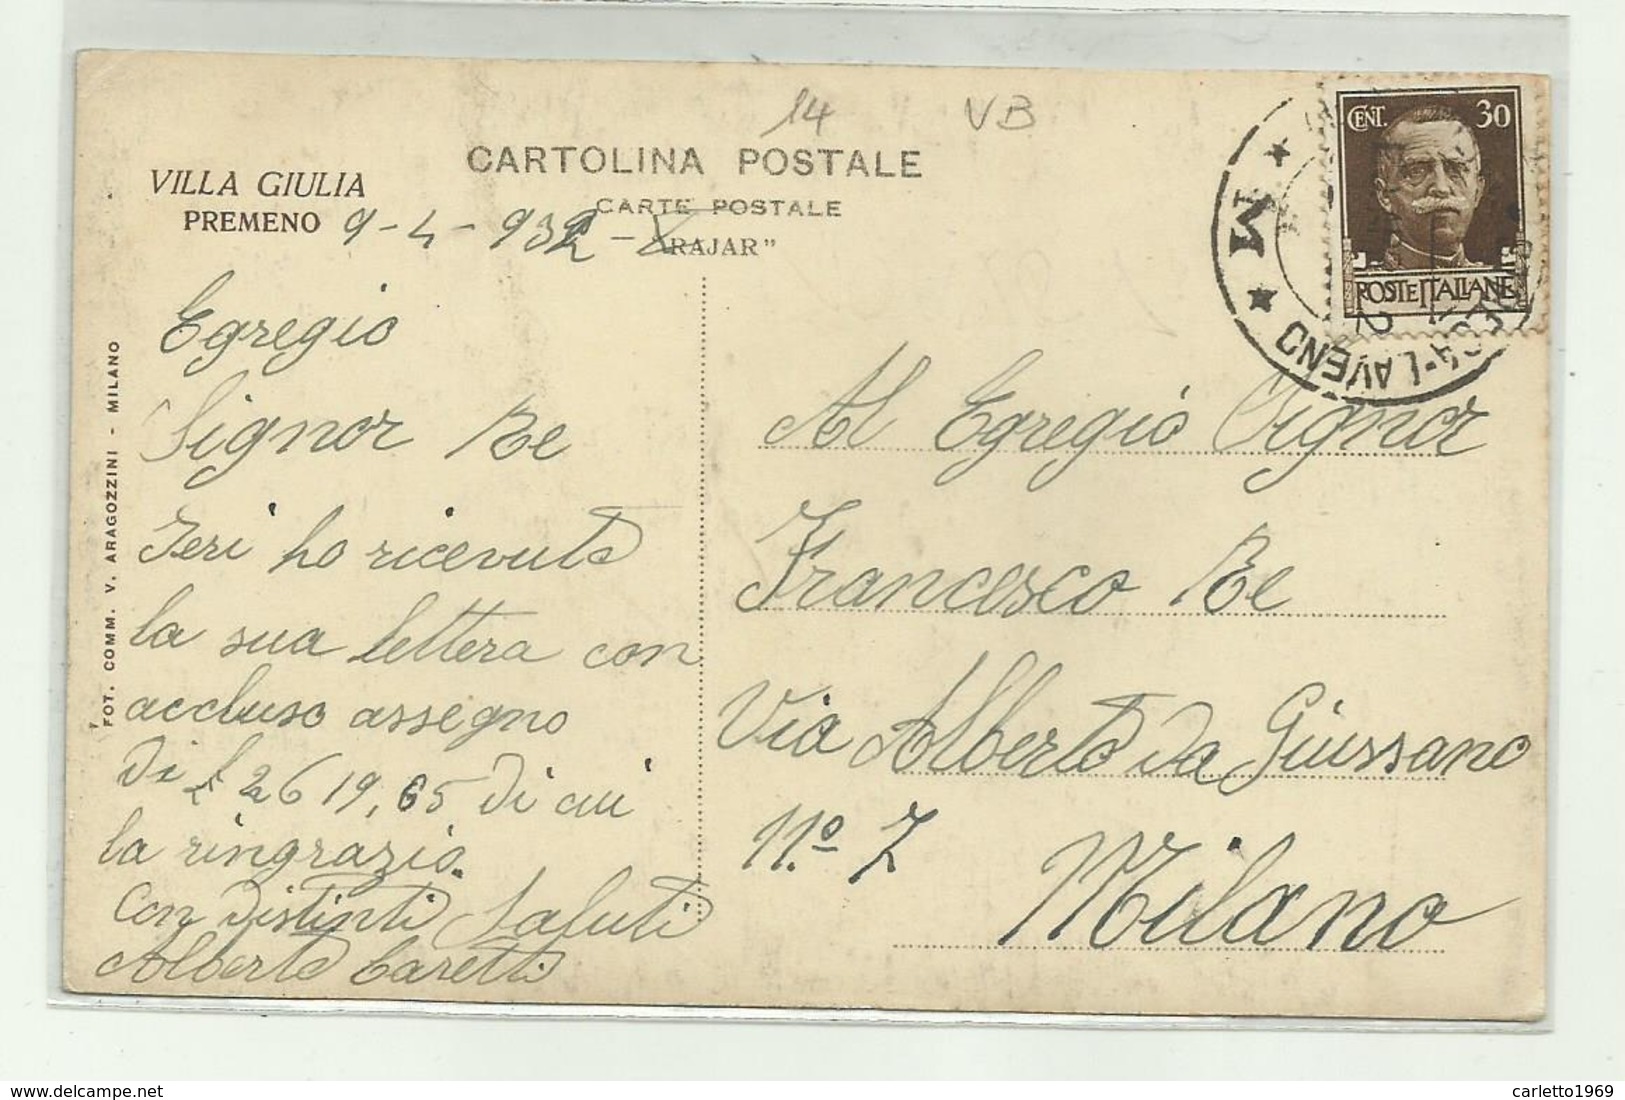 14 VB
CARTOLINA POSTALE
CARTE POSTALE
"RAJAR"
VILLA GIULIA
PREMENO 9-4-932-X
Egregio
Signor Re
Ieri ho ricevuto
la sua lettera con
accluso assegno
di £ 2619,65 di cui
la ringrazio.
Con distinti saluti
Alberto Caretti
FOT. COMM. V. ARAGOZZINI - MILANO
CENT. 30
POSTE ITALIANE
* M * LAVENO
Al Egregio Signor
Francesco Re
Via Alberto da Giussano
N.º 7
Milano
delcampe.net
carletto1969